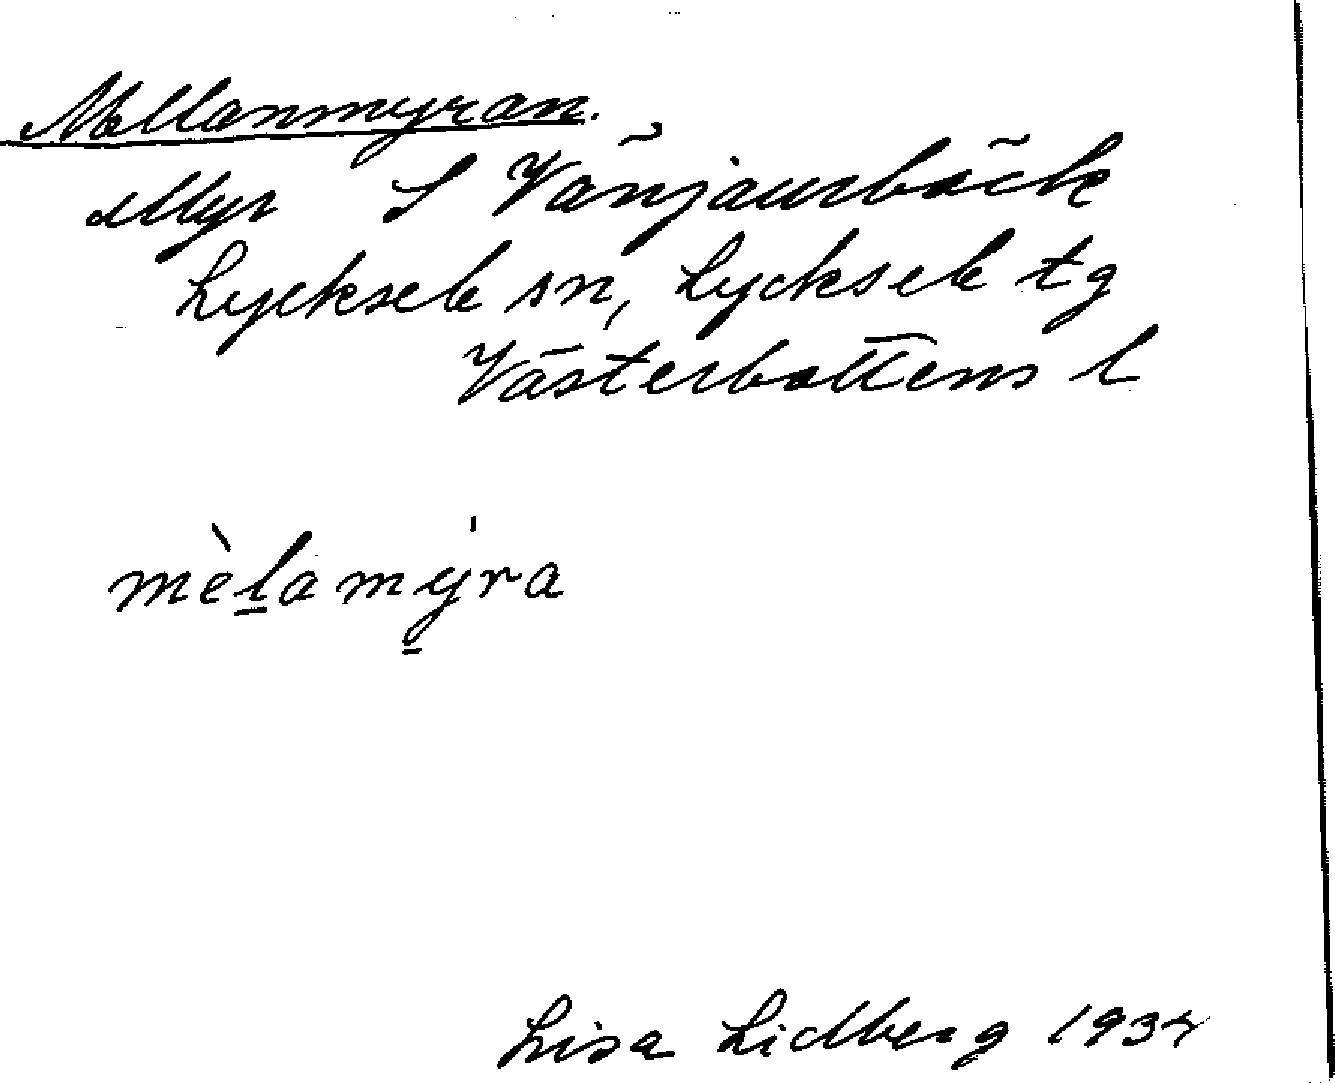 Mellanmyran.
Myr S Vänjaurbäck
Lycksele sn, Lycksele tg
Västerbottens l
mèl̠amy̠̍ra
Lisa Lidberg 1934